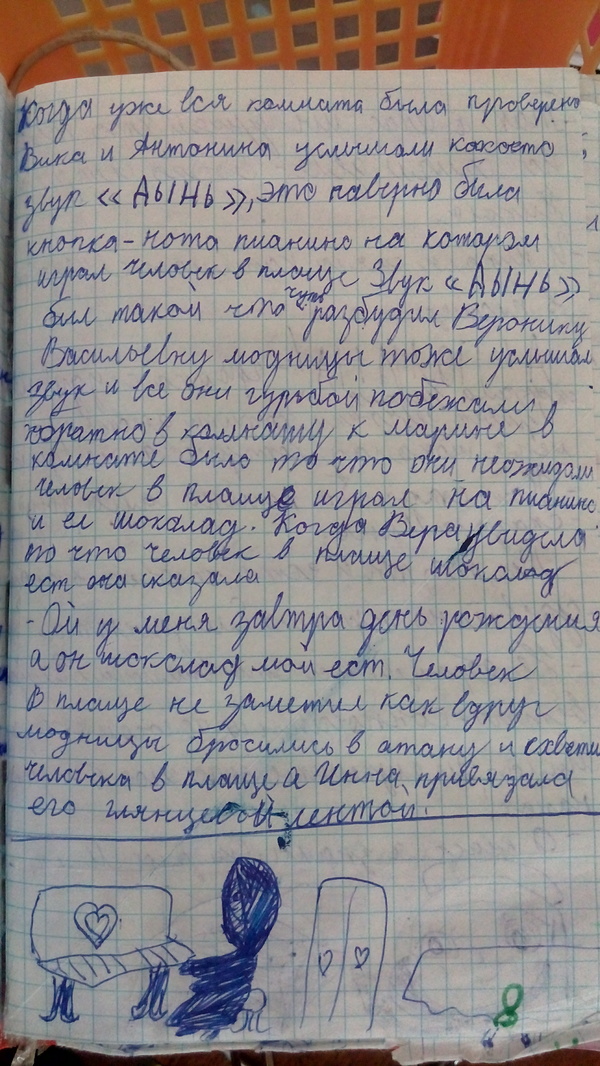 Когда уже вся комната была проверено
Вика и Антонина услышали какоето
звук «АЫНЬ», это наверно была
кнопка-нота пианино на котором
играл человек в плаще Звук «АЫНЬ»
был такой что чуть разбудил Веронику
Васильевну модницы тоже услышали
звук и все они гурьбой побежали
обратно в комнату к марине в
комнате было то что они неожидали
человек в плаще играл на пианино
и ел шоколад. Когда Вера увидела
то что человек в плаще шоколад
ест она сказала
- Ой у меня завтра день рождения
а он шоколад мой ест. Человек
в плаще не заметил как вдруг
модницы бросились в атаку и схвати
человека в плаще а Инна привязала
его глянцевой лентой.
8